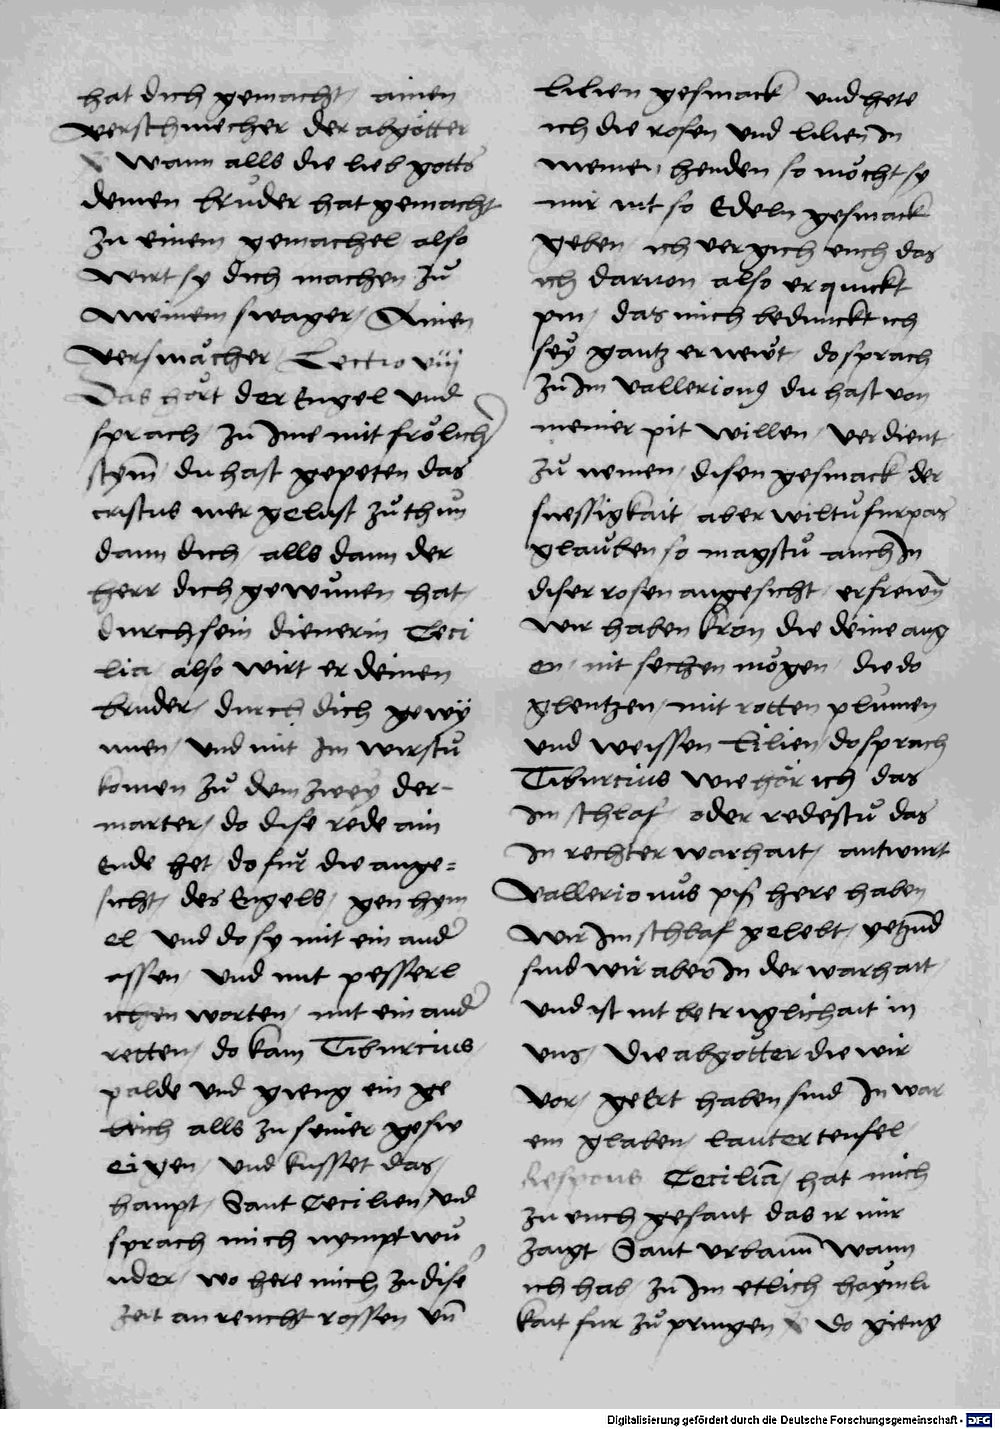 hat dich gemacht / ainen
verschmecher der abgötter
V wann alls die lieb gotts
deinen bruder hat gemacht
zu einem gemachel also
wirt sy dich machen zů
meinem swager / Ainen
versmächer / Lectio viij
Das hört der Engel und
sprach / zu Ime mit frölicher
stym̄ / du hast gepeten das
cristus mer gelust zů thun
dann dich / alls dann der
herr dich gewunen hat /
durch sein dienerin Ceci
lia / also wirt er deinen
bruder / durch dich gewy
nnen / und mit Im wirstů
komen zů dem zweÿ der-
marter / do dise rede ain
Ende het / do fur die ange=
sicht / des Engels / gen hym
el / und do sy mit ein ander
assen / und mit pesserl
ichen worten / mit ein ander
retten / do kam Tiburcius /
palde und gieng ein ge
leich alls zu seiner gesw
eigen / und kusset das /
haupt / Sant Cecilien / und
sprach mich nympt wu
nder / wo here mich zu diser
zeit an reucht rossen un̄
lilien gesmack und hete
ich die rosen und lilien In
meinen henden so möcht sy
mir nit so Edeln gesmack
geben / ich vergich euch das
ich daruon also erquickt
pin / das mich bedunckt ich
seÿ gantz ernewt / do sprach
zu Im Vallerionus du hast von
meiner pit willen / verdient
zů nemen / disen gesmack der
suessigkait / aber wiltů furpas
glauben so magstů auch In
diser rosen angesicht / erfrewn̄
wir haben kron die deine aug
en / nit sechen mögen / die do
glentzen / mit rotten plumen
und weissen Lilien / do sprach
Tiburcius wie hör ich das
Im schlaf / oder redestů das
In rechter warhait / antwurt
Vallerionus pis here haben
wir Im schlaf gelebt / yetzund
sind wir aber In der warhait /
und ist nit betruglichait in
uns / Die abgötter die wir
vor / geErt haben sind In war
em glaben / lauter teufel /
Respons Cecilia / hat mich
zu euch gesant das ir mir
zaigt Sant urbann wann
ich hab / zu Im etlich haymli
kait fur zů pringen V do gieng
Digitalisierung gefördert durch die Deutsche Forschungsgemeinschaft - DFG